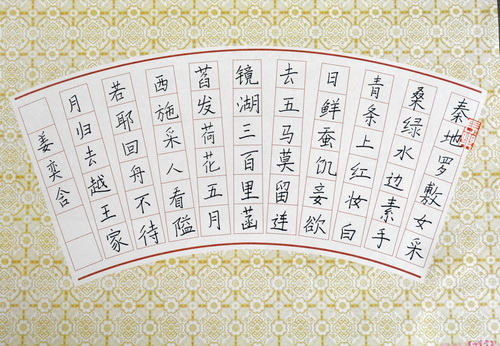 秦地罗敷女采
桑绿水边素手
青条上红妆白
日鲜蚕饥妾欲
去五马莫留连
镜湖三百里菡
萏发荷花五月
西施采人看隘
若耶回舟不待
月归去越王家
姜奕含